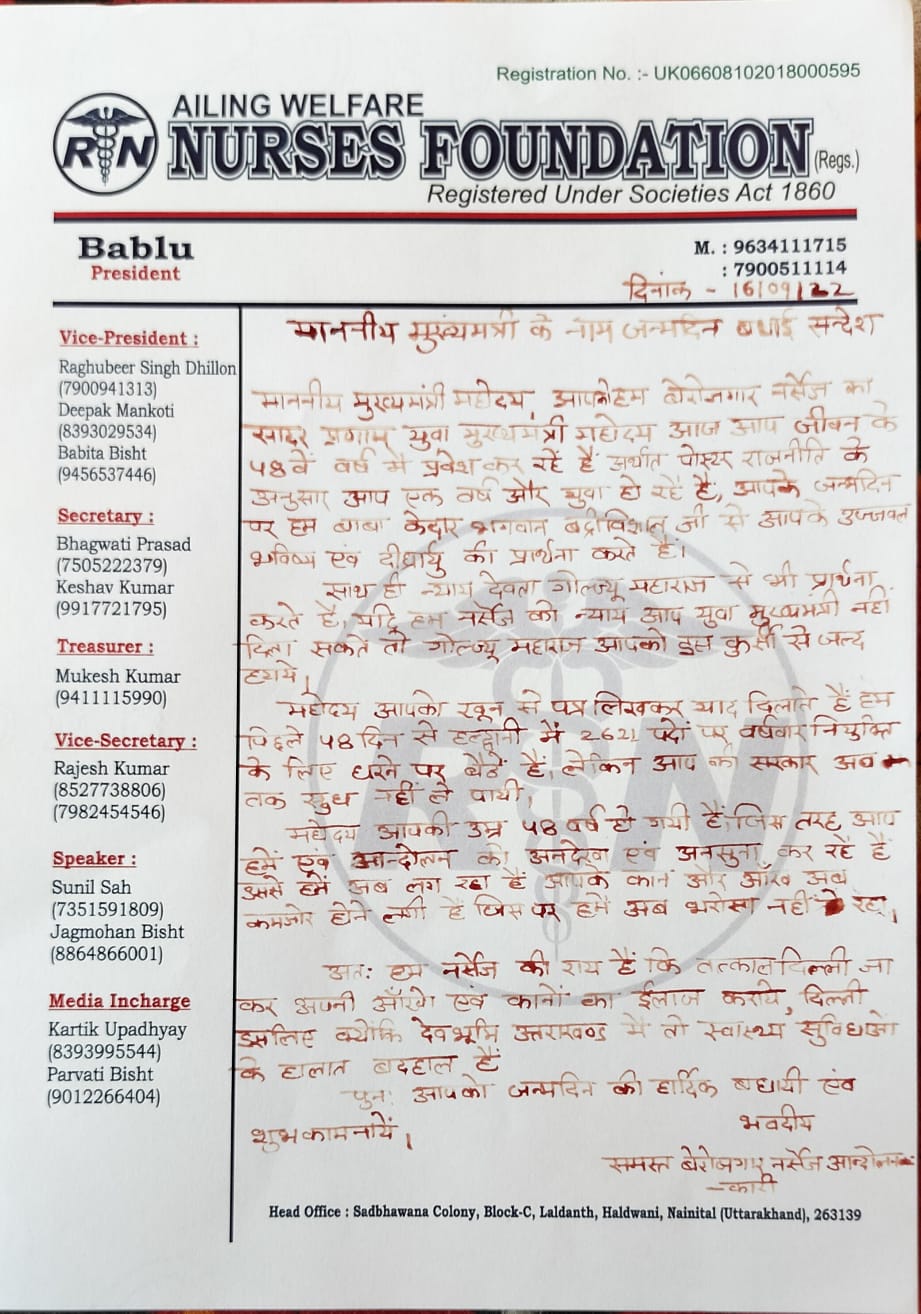 Registration No. :- UK06608102018000595
AILING WELFARE
RN NURSES FOUNDATION (Regs.)
Registered Under Societies Act 1860
Bablu
President
M. : 9634111715
: 7900511114
दिनांक - 16/09/22
Vice-President :
Raghubeer Singh Dhillon
(7900941313)
Deepak Mankoti
(8393029534)
Babita Bisht
(9456537446)
Secretary :
Bhagwati Prasad
(7505222379)
Keshav Kumar
(9917721795)
Treasurer :
Mukesh Kumar
(9411115990)
Vice-Secretary :
Rajesh Kumar
(8527738806)
(7982454546)
Speaker :
Sunil Sah
(7351591809)
Jagmohan Bisht
(8864866001)
Media Incharge
Kartik Upadhyay
(8393995544)
Parvati Bisht
(9012266404)
माननीय मुख्यमंत्री के नाम जन्मदिन बधाई सन्देश
माननीय मुख्यमंत्री महोदय, आपको हम बेरोजगार नर्सेज का
सादर प्रणाम, युवा मुख्यमंत्री महोदय आज आप जीवन के
48वें वर्ष में प्रवेश कर रहें हैं अर्थात पोस्टर राजनीति के
अनुसार आप एक वर्ष और युवा हो रहें है, आपके जन्मदिन
पर हम बाबा केदार भगवान बद्रीविशाल जी से आपके उज्जवल
भविष्य एवं दीर्घायु की प्रार्थना करते हैं।
साथ ही न्याय देवता गोल्ज्यू महाराज से भी प्रार्थना
करते हैं, यदि हम नर्सेज को न्याय आप युवा मुख्यमंत्री नहीं
दिला सकते तो गोल्ज्यू महाराज आपको इस कुर्सी से जल्द
हटाये।
महोदय आपको खून से पत्र लिखकर याद दिलाते हैं हम
पिछले 48 दिन से हल्द्वानी में 2621 पदों पर वर्षवार नियुक्ति
के लिए धरने पर बैठें हैं, लेकिन आप की सरकार अब
तक सुध नहीं ले पायी,
महोदय आपकी उम्र 48 वर्ष हो गयी हैं, जिस तरह आप
हमें एवं आन्दोलन को अनदेखा एवं अनसुना कर रहें हैं
उससे हमें अब लग रहा हैं आपके कान और आँख अब
कमजोर होने लगी हैं जिस पर हमें अब भरोसा नहीं रहा,
अतः हम नर्सेज की राय हैं कि तत्काल दिल्ली जा
कर अपनी आँखो एवं कानों का ईलाज कराये, दिल्ली
इसलिए क्योंकि देवभूमि उत्तराखण्ड में तो स्वास्थ्य सुविधाओं
के हालात बदहाल हैं
पुनः आपको जन्मदिन की हार्दिक बधायी एंव
शुभकामनायें,
भवदीय
समस्त बेरोजगार नर्सेज आन्दोलन-
-कारी
Head Office : Sadbhawana Colony, Block-C, Laldanth, Haldwani, Nainital (Uttarakhand), 263139